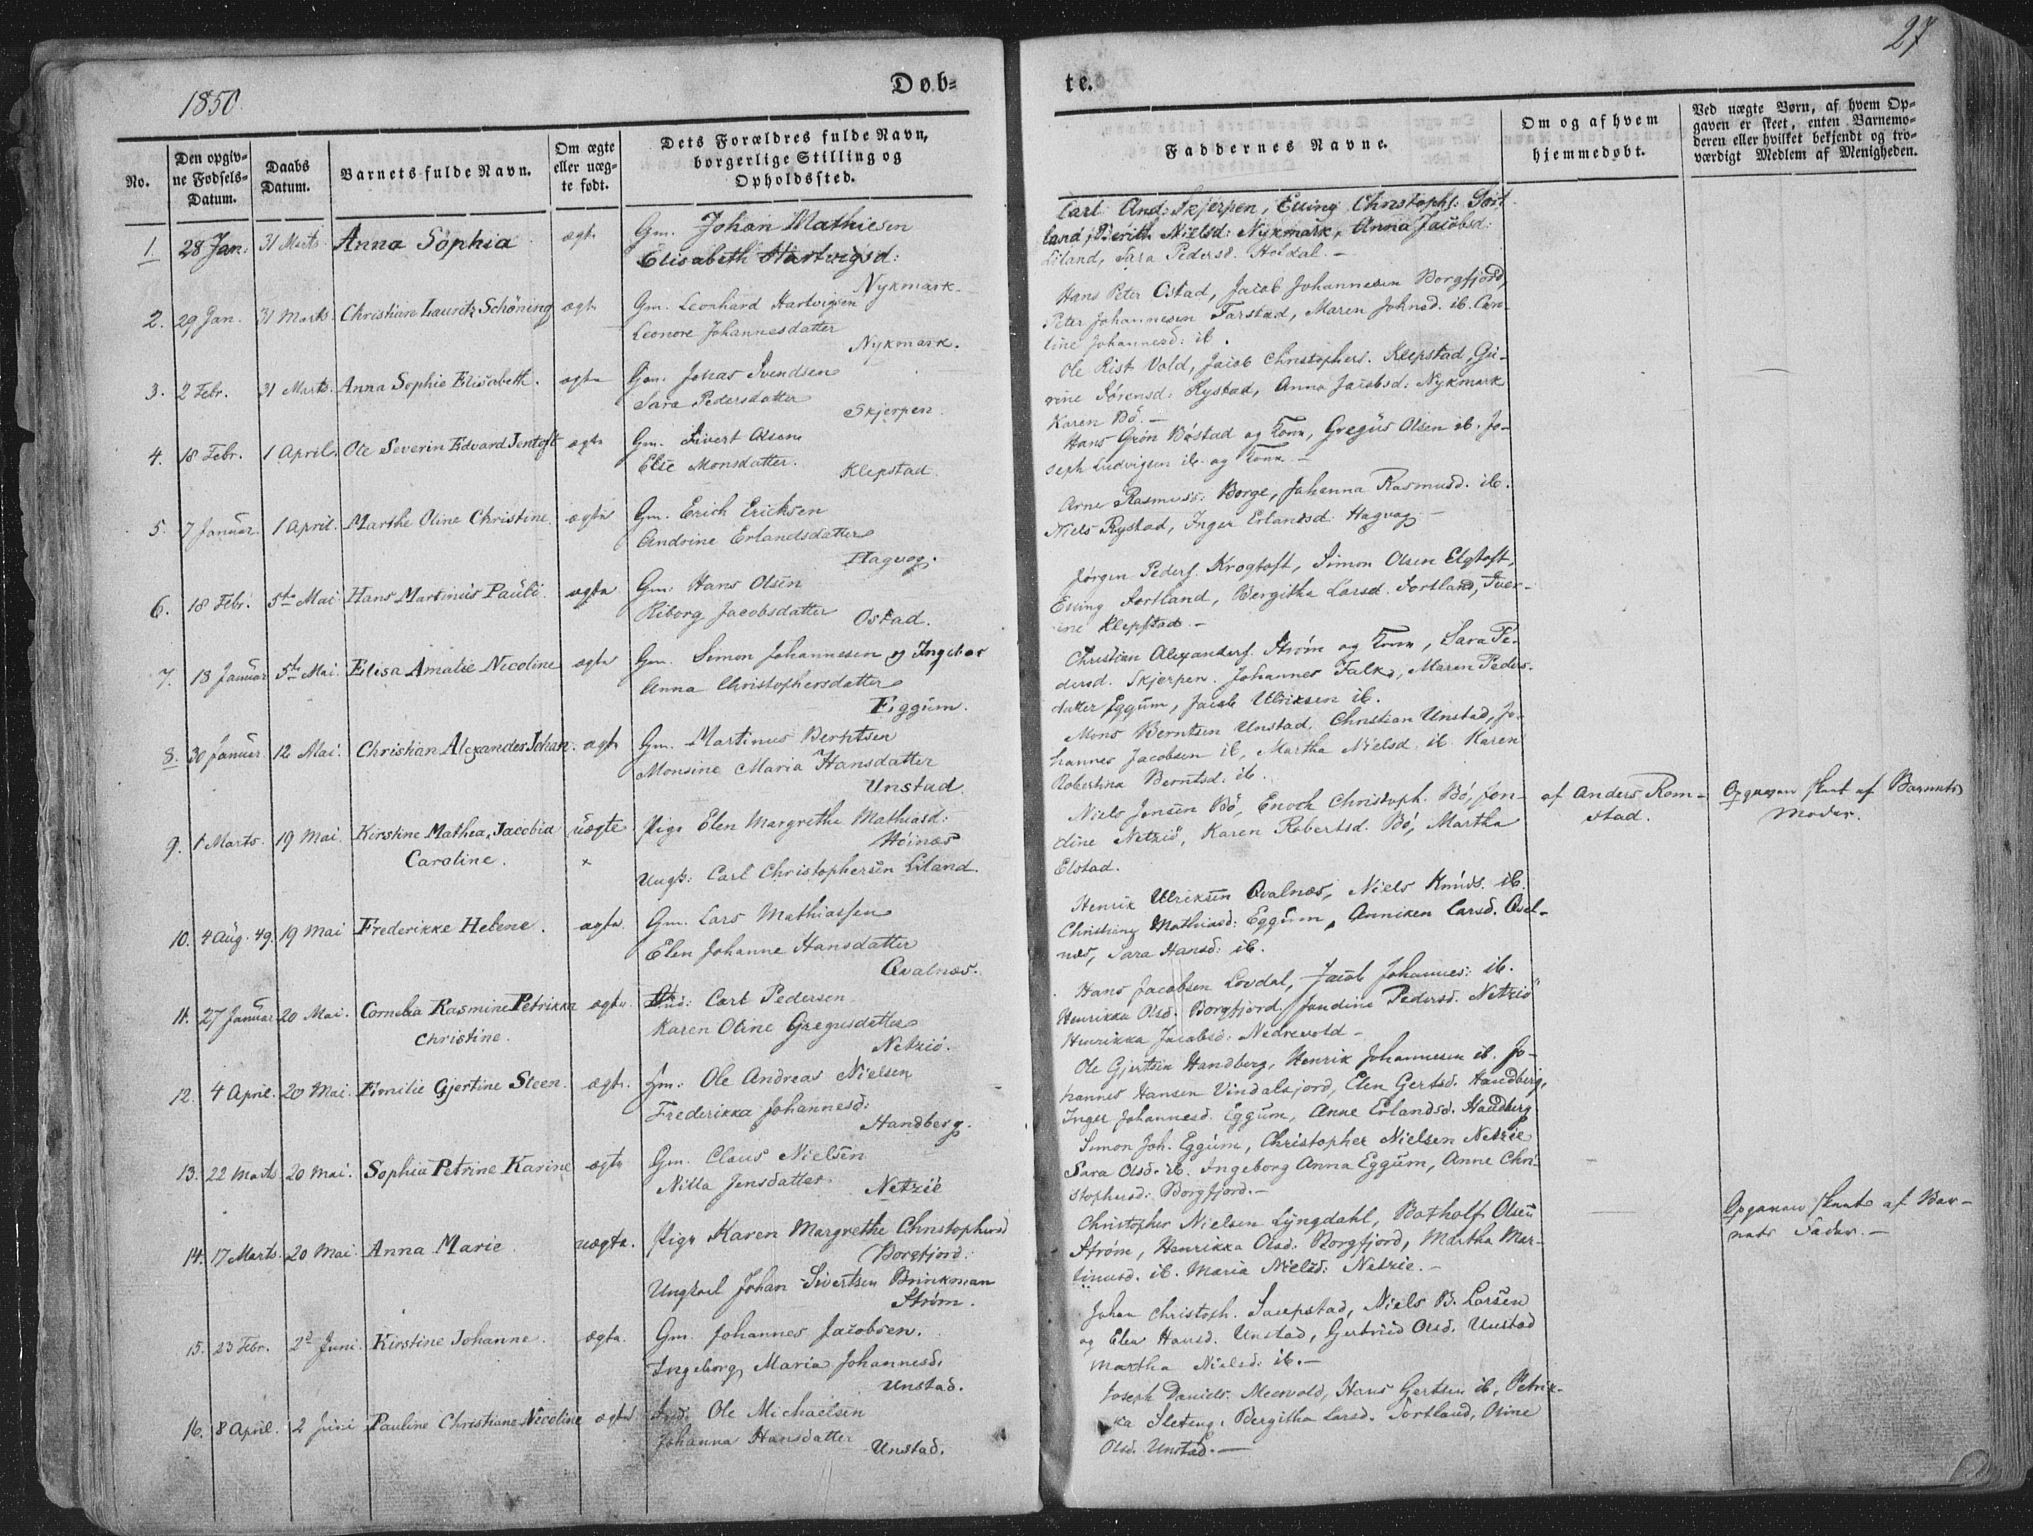 1850.
Døb=
Den opgiv=
ne Fødsels=
Datum.
No.
Daabs
Datum.
Barnets fulde Navn.
Om ægte
eller uæg=
te født.
Dets Forældres fulde Navn,
borgerlige Stilling og
Opholdssted.
1. 28 Jan: 31 Marts Anna Sophia ægte Gm. Johan Mathiesen
Elisabeth Hartvigsd:
Nykmark.
2. 29 Jan. 31 Marts Christian Lauritz Schöning ægte Gm. Leonhard Hartvigsen
Leonore Johannesdatter
Nykmark.
3. 2 Febr. 31 Marts Anna Sophie Elisabeth. ægte Gm. Jonas Svendsen
Sara Pedersdatter
Skjerpen.
4. 18 Febr. 1 April. Ole Severin Edvard Jentoft ægte Gm. Sivert Olsen
Else Monsdatter.
Klepstad.
5. 7 Januar. 1 April. Marthe Oline Christine ægte Gm. Erich Ericksen
Andrine Erlandsdatter
Hagvog.
6. 18 Febr. 5te Mai Hans Martinus Pauli. ægte Gm: Hans Olsen
Riborg Jacobsdatter
Ostad.
7. 13 Januar 5te Mai. Elisa Amalie Nicoline ægte Gm. Simon Johannesen og Ingebor
Anna Christophersdatter
Eggum.
8. 30 Januar 12 Mai. Christian Alexander Johan. ægte Gm. Martinus Berntsen
Monsine Maria Hansdatter
Unstad.
9. 1 Marts. 19 Mai. Kirstine Mathea, Jacobia uægte Pige Elen Margrethe Mathiasd:
Caroline. × Höinæs
Ungk: Carl Christophersen Liland.
10. 4 Aug. 49. 19 Mai Frederikke Helene. ægte. Gm. Lars Mathiassen
Elen Johanne Hansdatter
Qvalnæs.
11. 27 Januar 20 Mai. Cornelia Rasmine Petrikka ægte. Ind: Carl Pedersen
Christine. Karen Oline Gregusdatter
Netziö.
12. 4 April. 20 Mai. Emilie Gjertine Steen. ægte. Hm: Ole Andreas Nielsen
Frederikka Johannesd:
Handberg.
13. 22 Marts 20 Mai. Sophia Petrine Karine ægte Gm. Claus Nielsen
Nilla Jensdatter
Netzie
14. 17 Marts. 20 Mai Anna Marie. uægte. Pige Karen Margrethe Christophersd
Borgfjord.
Ungkarl Johan Sivertsen Brinkman
Strøm.
15. 23 Febr. 2d Juni Kirstine Johanne. ægte. Gm. Johannes Jacobsen.
Ingeborg Maria Johannesd.
Unstad.
16. 8 April. 2 Juni Pauline Christiane Nicoline ægte Ind: Ole Michaelsen
Johanna Hansdatter
Unstad.
27
te.
Faddernes Navne.
Om og af hvem
hjemmedøbt.
Ved uægte Børn, af hvem Op=
gaven er skeet, enten Barnemo=
deren eller hvilket bekjendt og tro=
værdigt Medlem af Menigheden.
Carl And: Skjerpen, Eving Christophs: Sort
land, Berith Nielsd: Nykmark, Anna Jacobsd:
Liland, Sara Pedersd. Holdal. -
Hans Peter Ostad, Jacob Johannesen Borgfjord,
Peter Johannesen Farstad, Maren Johnsd. ib.
line Johannesd: ib.
Ole Rist Vold, Jacob Christophers. Klepstad, Gu-
rine Sørensd: Rystad, Anna Jacobsd: Nykmark
Karen Bö. -
Hans Grön Böstad og Kone, Gregus Olsen ib. Jo-
seph Ludvigsen ib. og Kone. -
Arne Rasmuss: Borge, Johanna Rasmusd. ib.
Niels Rystad, Inger Erlandsd: Hagvog. -
Jörgen Peders. Krogtoft, Simon Olsen Elgtoft,
Eving Sortland, Bergitha Larsd. Sortland, Sver-
ine Klepstad. -
Christian Alexanders. Strøm og Kone, Sara Pe-
dersd. Skjerpen. Johannes Falk, Maren Peders-
datter Eggum, Jacob Ulriksen ib.
Mons Berntsen Unstad. Christian Unstad, Jo-
hannes Jacobsen ib, Martha Nielsd. ib. Karen
Robertina Berntsd: ib.
Niels Jensen Bö, Enoch Christoph. Bö, Jen-
dine Netziö, Karen Robertsd. Bö, Martha
Elstad.
af Anders Rom-
stad.
Opgaven skeet af Barnets
Moder.
Henrik Ulriksen Qvalnæs, Niels Knuds. ib.
Christine Mathiasd: Eggum, Anniken Larsd. Qval-
næs, Sara Hansd: ib.
Hans Jacobsen Lovdal, Jacob Johannes: ib.
Henrikka Olsd. Borgfjord, Jendine Pedersd. Netziö
Henrikka Jacobsd: Nedrevold -
Ole Gjertsen Handberg, Henrik Johannesen ib. Jo-
hannes Hansen Vindalsjord, Elen Gertsd. Handberg,
Inger Johannesd. Eggum, Anne Erlandsd. Handberg
Simon Joh. Eggum, Christopher Nielsen Netzie
Sara Olsd. ib. Ingeborg Anna Eggum, Anne Chri-
stophersd: Borgfjord. -
Christopher Nielsen Lyngdahl, Botholf Olsen
Strøm, Henrikka Olsd. Borgfjord, Martha Mar-
tinusd. ib. Maria Nielsd: Netzie. -
Opgaven skeet af Bar-
nets Fader. -
Johan Christoph. Saupstad, Niels B. Larsen
og Elen Hansd. Unstad, Gertrud Olsd. Unstad
Martha Nielsd: ib. -
Joseph Daniels. Meervold, Hans Gertsen ib, Petrik-
ka Sleteng, Bergitha Larsd. Sortland, Oline
Olsd. Unstad. -